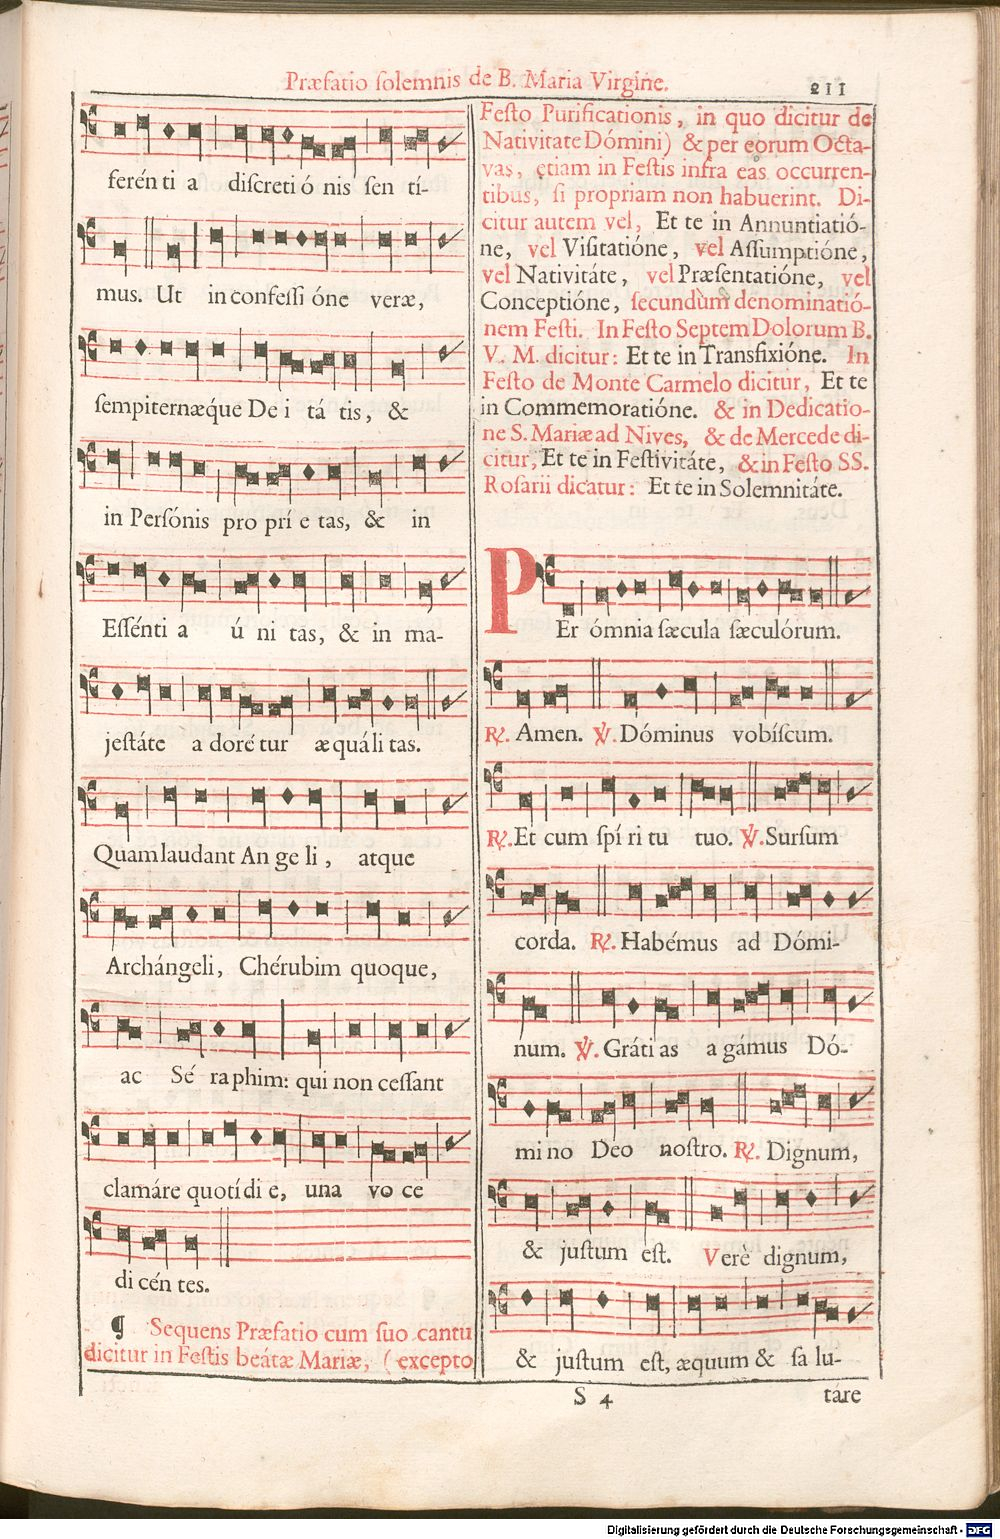 Præfatio ſolemnis de B. Maria Virgine.
211
ferén ti a diſcreti ó nis ſen tí-
mus. Ut in confeſſi óne veræ,
ſempiternæq́ue De i tá tis, &
in Perſónis pro prí e tas, & in
Eſſénti a ú ni tas, & in ma-
jeſtáte a doré tur æ quáli tas.
Quam laudant An ge li, atque
Archángeli, Chérubim quoque,
ac Sé ra phim: qui non ceſſant
clamáre quotí di e, una vo ce
di cén tes.
¶ Sequens Præfatio cum ſuo cantu
dicitur in Feſtis beátæ Mariæ, (excepto
Feſto Purificationis, in quo dicitur de
Nativitate Dómini) & per eorum Octa-
vas, etiam in Feſtis infra eas occurren-
tibus, ſi propriam non habuerint. Di-
citur autem vel, Et te in Annuntiatió-
ne, vel Viſitatióne, vel Aſſumptióne,
vel Nativitáte, vel Præſentatióne, vel
Conceptióne, ſecundùm denominatió-
nem Feſti. In Feſto Septem Dolorum B.
V. M. dicitur: Et te in Transfixióne. In
Feſto de Monte Carmelo dicitur, Et te
in Commemoratióne. & in Dedicatio-
ne S. Mariæ ad Nives, & de Mercede di-
citur, Et te in Feſtivitáte, & in Feſto SS.
Roſarii dicatur: Et te in Solemnitáte.
PEr ómnia ſæcula ſæculórum.
℟. Amen. ℣. Dóminus vobíſcum.
℟. Et cum ſpí ri tu tuo. ℣. Surſum
corda. ℟. Habémus ad Dómi-
num. ℣. Gráti as a gámus Dó-
mi no Deo noſtro. ℟. Dignum,
& juſtum eſt. Verè dignum,
& juſtum eſt, æquum & ſa lu-
S 4
táre
Digitalisierung gefördert durch die Deutsche Forschungsgemeinschaft - DFG